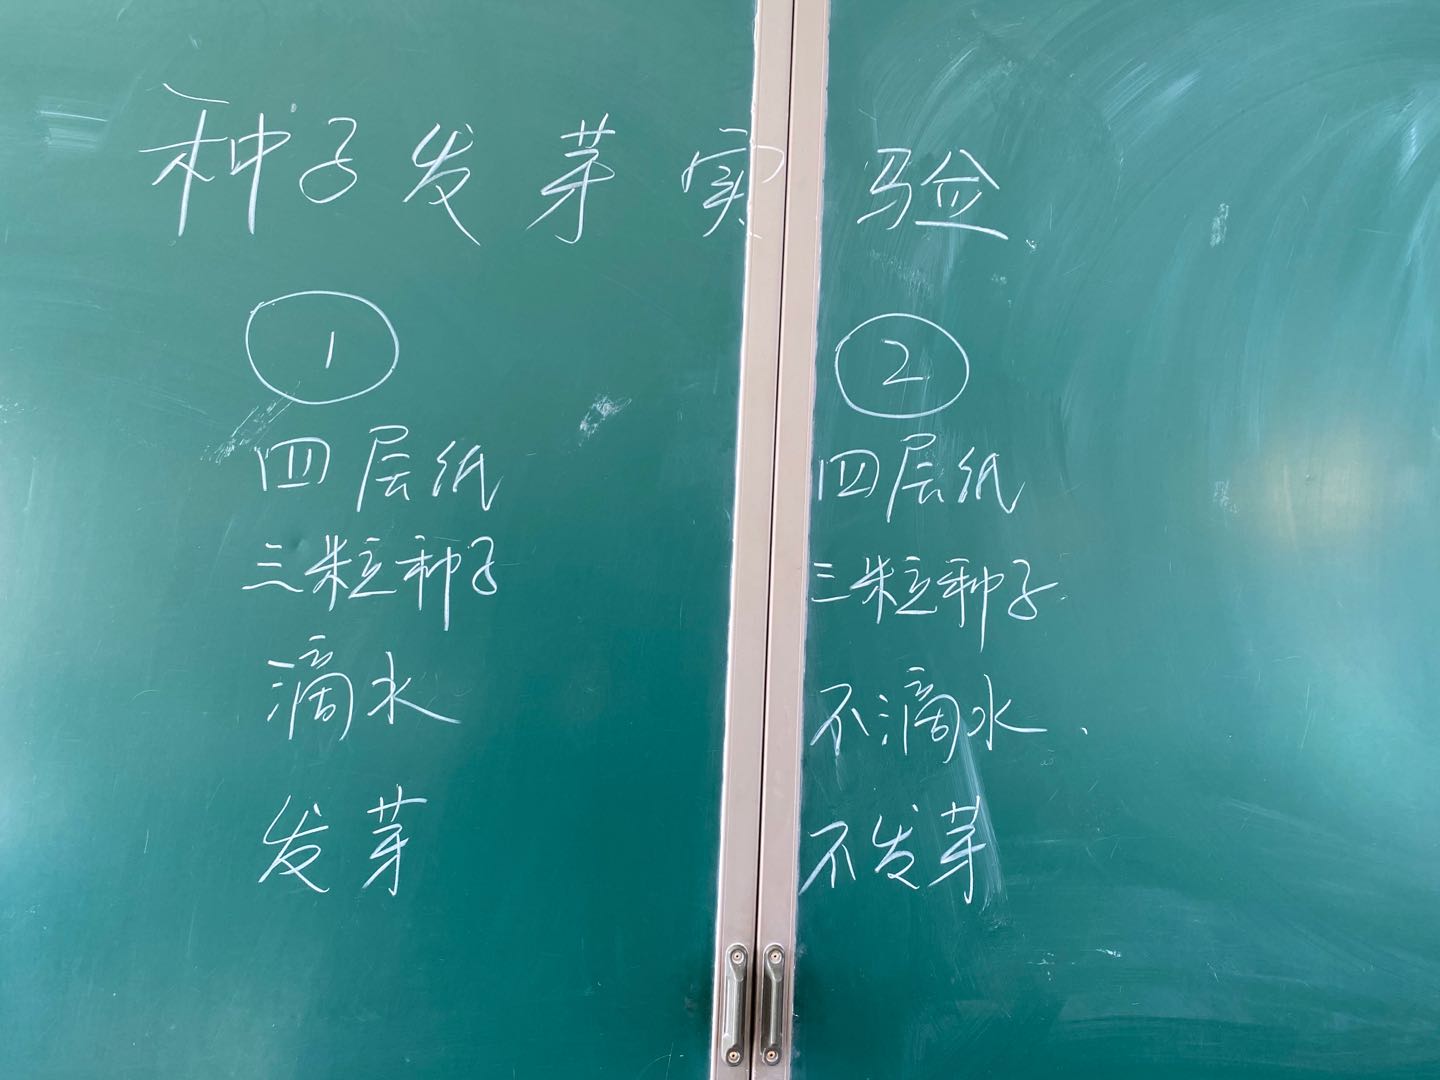 种子发芽实验
1
四层纸
三粒种子
滴水
发芽
2
四层纸
三粒种子
不滴水
不发芽